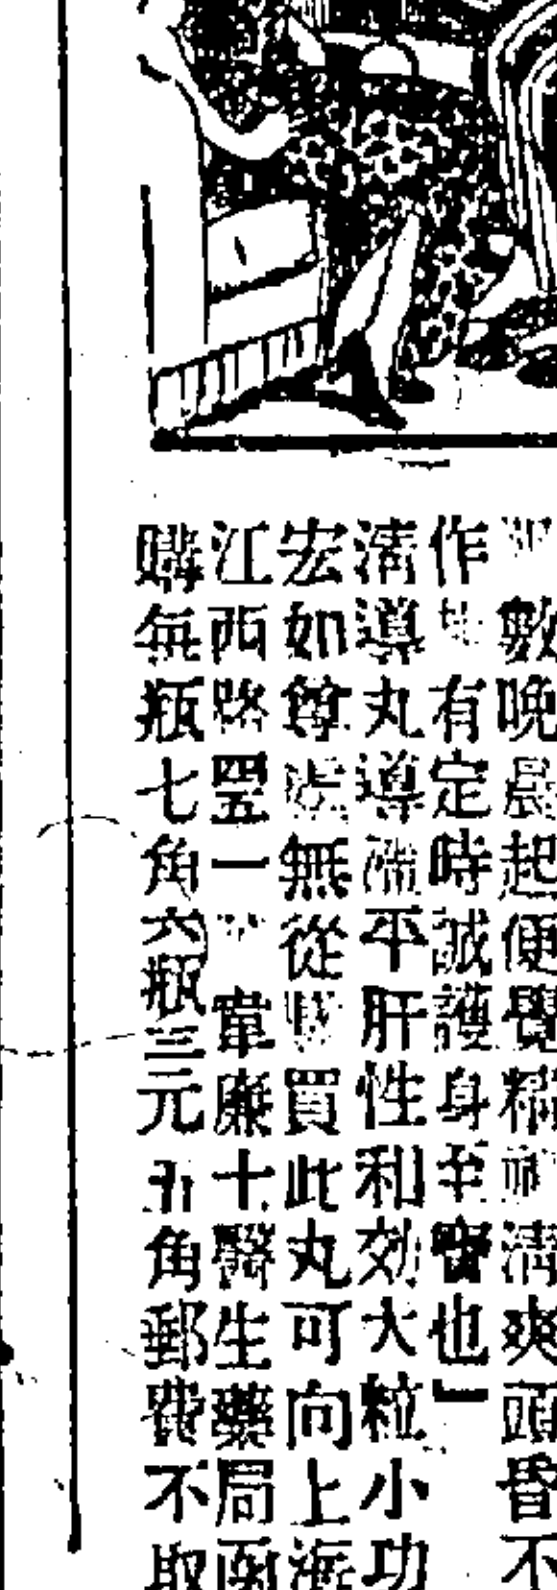 數晚晨起便覺精神清爽頭昏不
作 有定時誠護身至寶也」
清導丸導滯平肝性和効大粒小功
宏如尊處無從購買此丸可向上海
江西路四五一號韋廉士醫生藥局函
購每瓶七角六瓶三元五角郵費不取